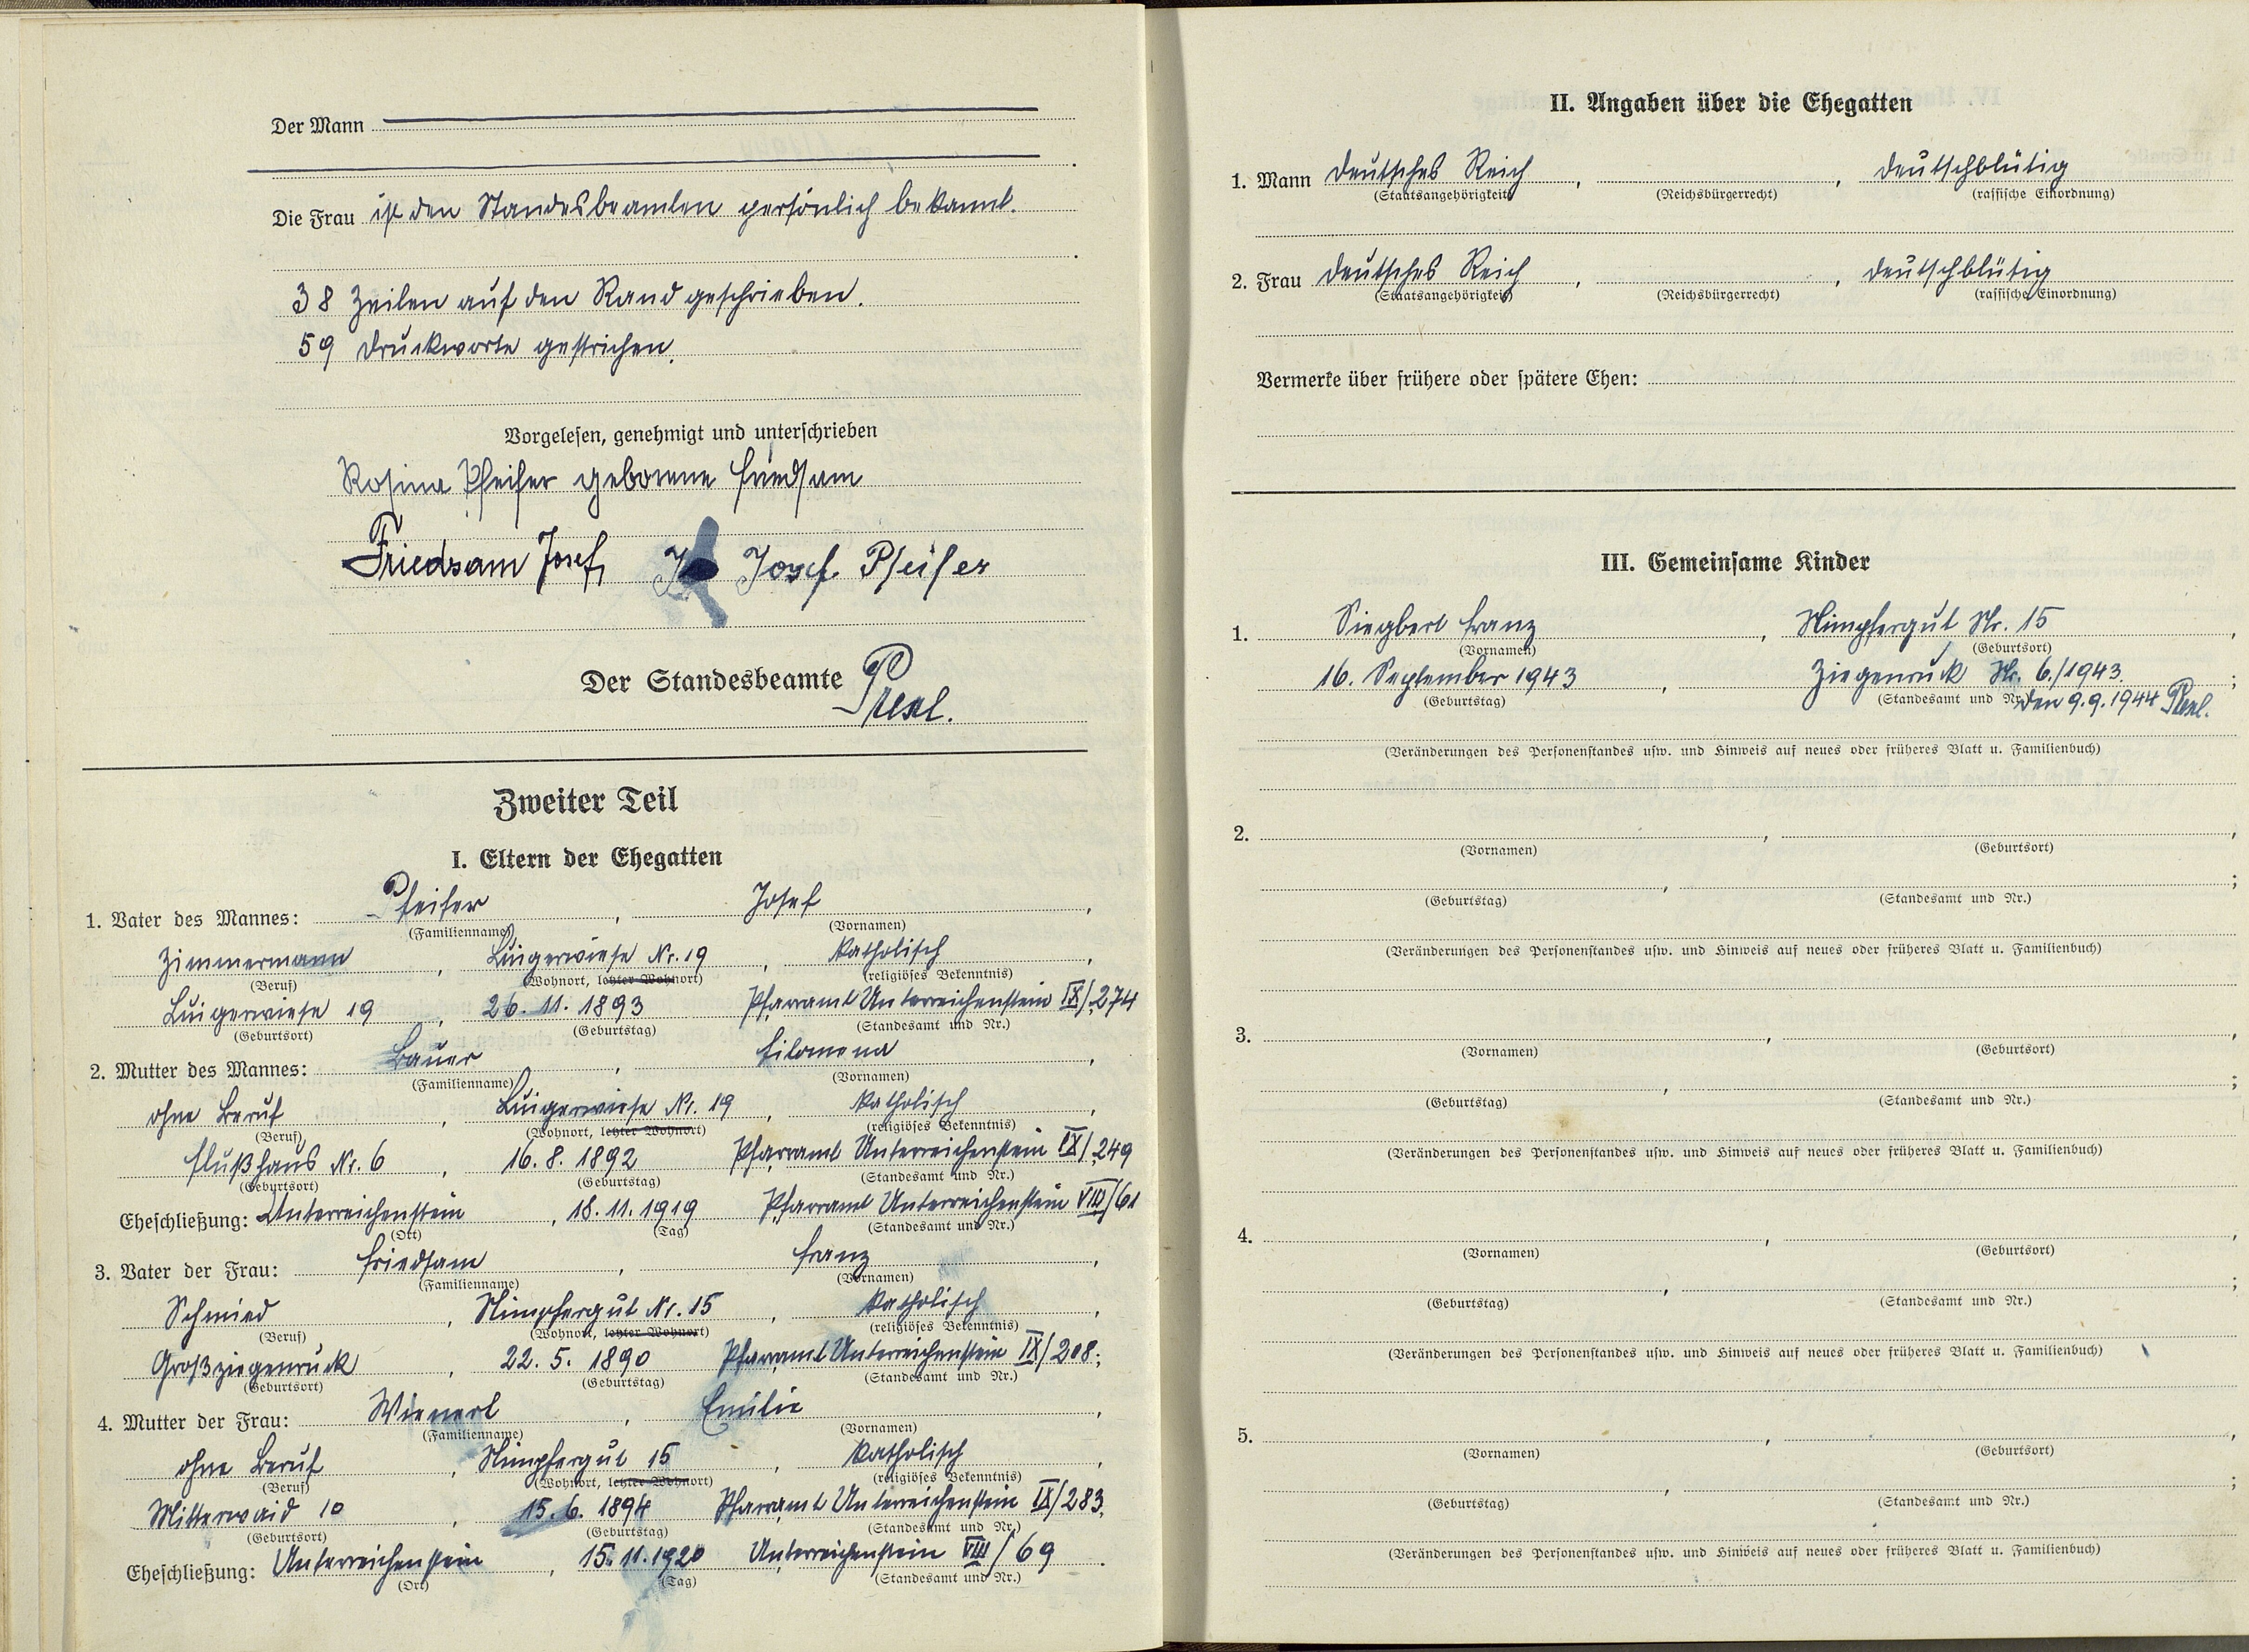 Der Mann
Die Frau ist den Standesbeamten persönlich bekannt.
38 Zeilen auf den Rand geschrieben.
59 Druckworte gestrichen.
Vorgelesen, genehmigt und unterschrieben
Rosina Pfeifer geborene Friedsam
Friedsam Josef, Josef Pfeifer
Der Standesbeamte
Zweiter Teil
I. Eltern der Ehegatten
1. Vater des Mannes: Pfeifer, Josef,
(Familienname) (Vornamen)
Zimmermann, Luigerwiese Nr. 19, katholisch,
(Beruf) (Wohnort, letzter Wohnort) (religiöses Bekenntnis)
Luigerwiese 19, 26. 11. 1893 Pfarramt Unterreichenstein IX/274
(Geburtsort) (Geburtstag) (Standesamt und Nr.)
2. Mutter des Mannes: Bauer, Filomena,
(Familienname) (Vornamen)
ohne Beruf, Luigerwiese Nr. 19, katholisch,
(Beruf) (Wohnort, letzter Wohnort) (religiöses Bekenntnis)
Flußhaus Nr. 6, 16. 8. 1892 Pfarramt Unterreichenstein IX/249
(Geburtsort) (Geburtstag) (Standesamt und Nr.)
Eheschließung: Unterreichenstein, 18. 11. 1919 Pfarramt Unterreichenstein VIII/61
(Ort) (Tag) (Standesamt und Nr.)
3. Vater der Frau: Friedsam, Franz,
(Familienname) (Vornamen)
Schmied, Nimpfergut Nr. 15, katholisch,
(Beruf) (Wohnort, letzter Wohnort) (religiöses Bekenntnis)
Großziegenruck, 22. 5. 1890 Pfarramt Unterreichenstein IX/208;
(Geburtsort) (Geburtstag) (Standesamt und Nr.)
4. Mutter der Frau: Wienerl, Emilie,
(Familienname) (Vornamen)
ohne Beruf, Nimpfergut 15, katholisch,
(Beruf) (Wohnort, letzter Wohnort) (religiöses Bekenntnis)
Mitterwaid 10, 15. 6. 1894 Pfarramt Unterreichenstein IX/283,
(Geburtsort) (Geburtstag) (Standesamt und Nr.)
Eheschließung: Unterreichenstein, 15. 11. 1920, Unterreichenstein VIII/69.
(Ort) (Tag) (Standesamt und Nr.)
II. Angaben über die Ehegatten
1. Mann Deutsches Reich, , deutschblütig
(Staatsangehörigkeit) (Reichsbürgerrecht) (rassische Einordnung)
2. Frau Deutsches Reich, , deutschblütig
(Staatsangehörigkeit) (Reichsbürgerrecht) (rassische Einordnung)
Vermerke über frühere oder spätere Ehen:
III. Gemeinsame Kinder
1. Siegbert Franz, Nimpfergut Nr. 15,
(Vornamen) (Geburtsort)
16. September 1943, Ziegenruck Nr. 6/1943;
(Geburtstag) (Standesamt und Nr.) den 9. 9. 1944
(Veränderungen des Personenstandes usw. und Hinweis auf neues oder früheres Blatt u. Familienbuch)
2. , ,
(Vornamen) (Geburtsort)
, ;
(Geburtstag) (Standesamt und Nr.)
(Veränderungen des Personenstandes usw. und Hinweis auf neues oder früheres Blatt u. Familienbuch)
3. , ,
(Vornamen) (Geburtsort)
, ;
(Geburtstag) (Standesamt und Nr.)
(Veränderungen des Personenstandes usw. und Hinweis auf neues oder früheres Blatt u. Familienbuch)
4. , ,
(Vornamen) (Geburtsort)
, ;
(Geburtstag) (Standesamt und Nr.)
(Veränderungen des Personenstandes usw. und Hinweis auf neues oder früheres Blatt u. Familienbuch)
5. , ,
(Vornamen) (Geburtsort)
, ;
(Geburtstag) (Standesamt und Nr.)
(Veränderungen des Personenstandes usw. und Hinweis auf neues oder früheres Blatt u. Familienbuch)